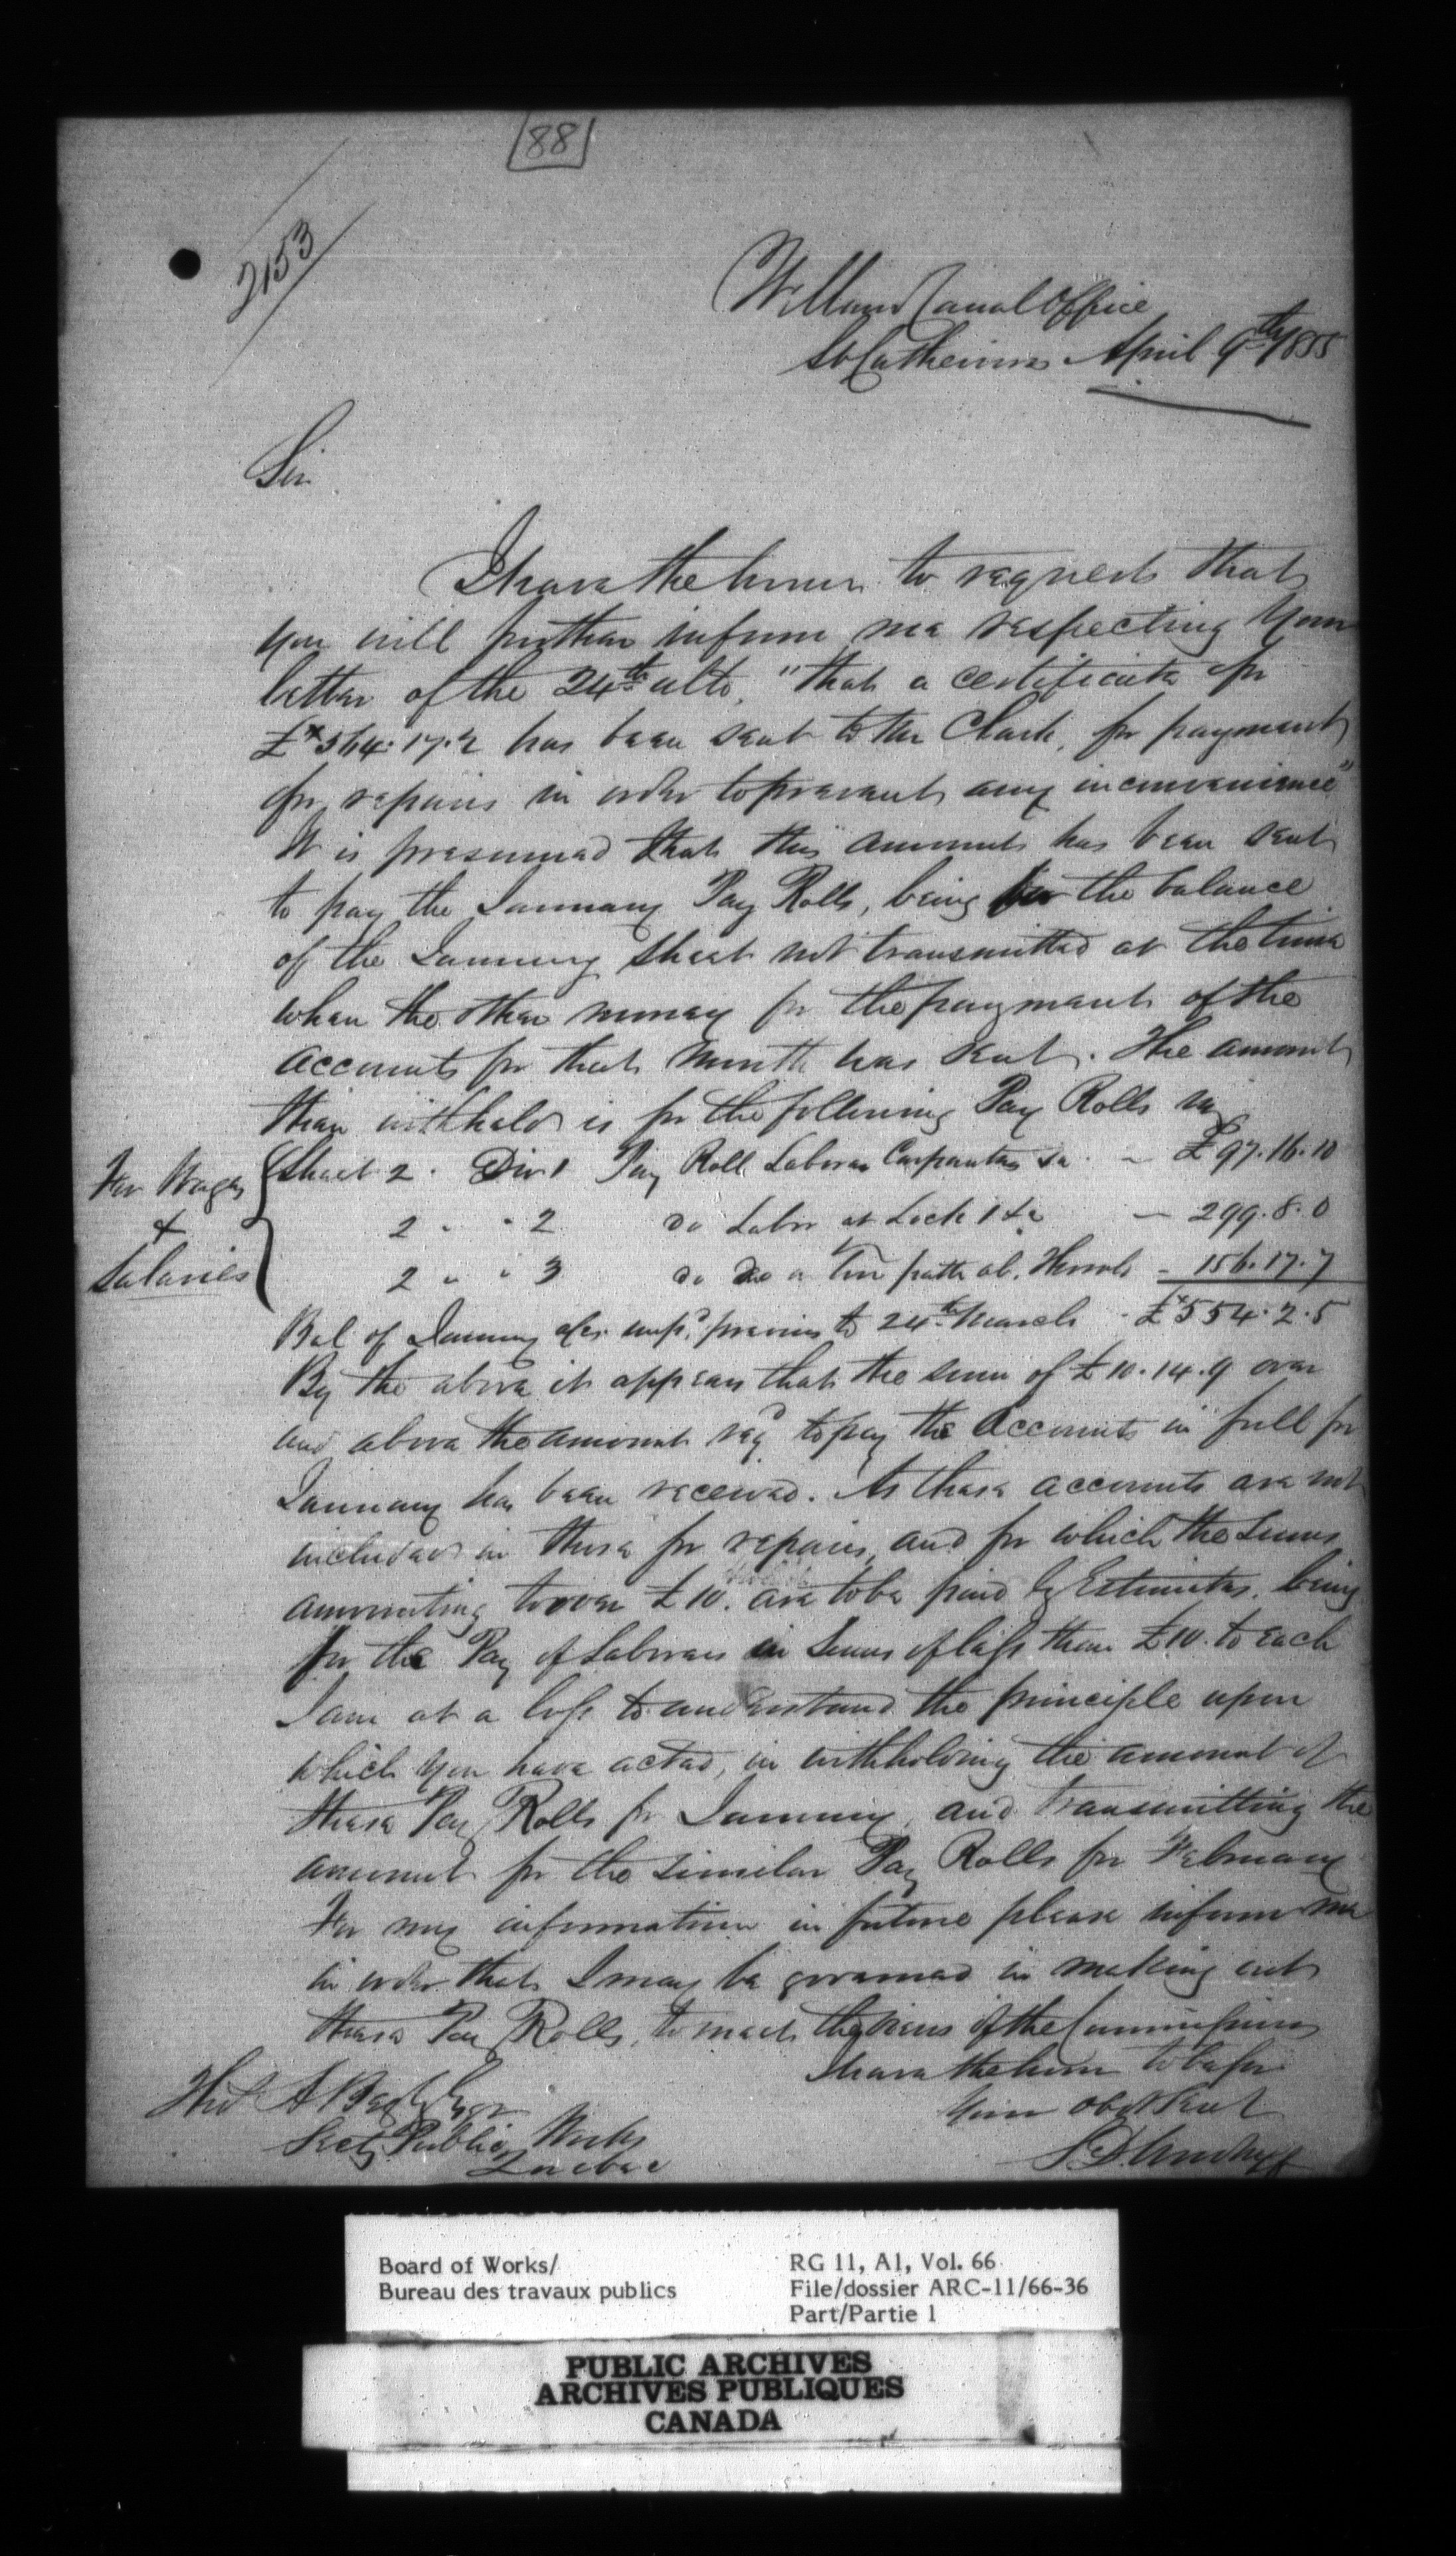 88
2153
Welland Canal Office
St Catherines April 9th 1855
Sir
I have the honor to request that
you will further inform me respecting your
letter of the 24th ulto, "that a certificate for
£564.17.2 has been sent to the Clark, for payment
for repairs in order to prevent any inconvenience"
It is presumed that this amount has been sent
to pay the January Pay Rolls, being for the balance
of the January sheet not transmitted at the time
when the other money for the payment of the
accounts for that month was sent. The amount
then withheld is for the following Pay Rolls viz
For Wages
&
Salaries
Sheet 2 . Div 1 Pay Roll Laborers Carpenters &c. - £97.16.10
2 " " 2 do Labor at Lock 1 &c - 299.8.0
2 " " 3 do do on Tow path ab. - 156.17.7
Bal of January a/cs unpd previous to 24th March - £554.2.5
By the above it appears that the sum of £10.14.9 over
and above the amount reqd to pay the Accounts in full for
January has been received. As these accounts are not
included in those for repairs, and for which the sums
amounting to over £10. are to be paid by Estimates, being
for the Pay of Laborers in sums of less than £10. to each
I am at a loss to understand the principle upon
which you have acted, in withholding the amount of
these Pay Rolls for January, and transmitting the
amount for the similar Pay Rolls for February
For my information in future please inform me
in order that I may be governed in making out
these Pay Rolls, to meet the views of the Commissioners
I have the honor to be Sir
Your obdt Servt
S.D. Woodruff
Thos A Begly Esqr
Secty Public Works
Quebec
Board of Works/
Bureau des travaux publics
RG 11, A1, Vol. 66
File/dossier ARC-11/66-36
Part/Partie 1
PUBLIC ARCHIVES
ARCHIVES PUBLIQUES
CANADA